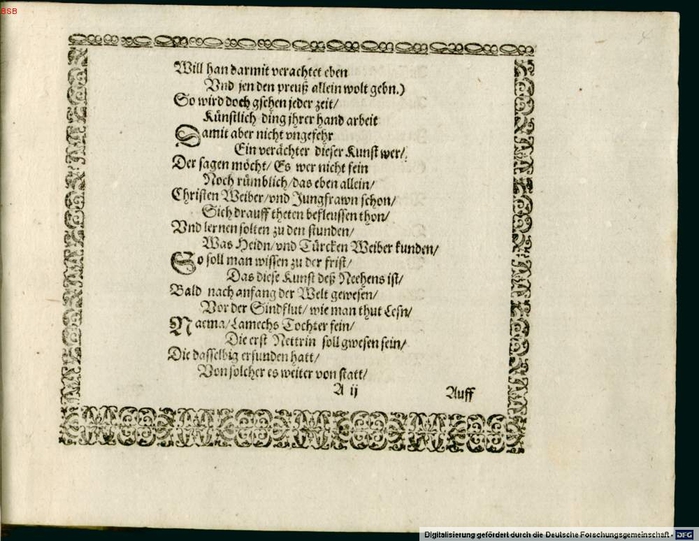 BSB
Will han darmit verachtet eben
Vnd jen den preuß allein wolt gebn.)
So wird doch gsehen jeder zeit/
Künstlich ding jhrer hand arbeit
Damit aber nicht vngefehr
Ein verächter dieser Kunst wer/
Der sagen möcht/ Es wer nicht fein
Noch rümblich/ das eben allein/
Christen Weiber/ vnd Jungfrawn schon/
Sich drauff theten befleussen thon/
Vnd lernen solten zu den stunden/
Was Heiden/ vnd Türcken Weiber kunden/
So soll man wissen zu der frist/
Das diese Kunst deß Neehens ist/
Bald nach anfang der Welt gewesen/
Vor der Sindflut/ wie man thut Lesn/
Naema/ Lamechs Tochter fein/
Die erst Nettrin soll gwesen sein/
Die dasselbig erfunden hatt/
Von solcher es weiter von statt/
A ij
Auff
Digitalisierung gefördert durch die Deutsche Forschungsgemeinschaft - DFG